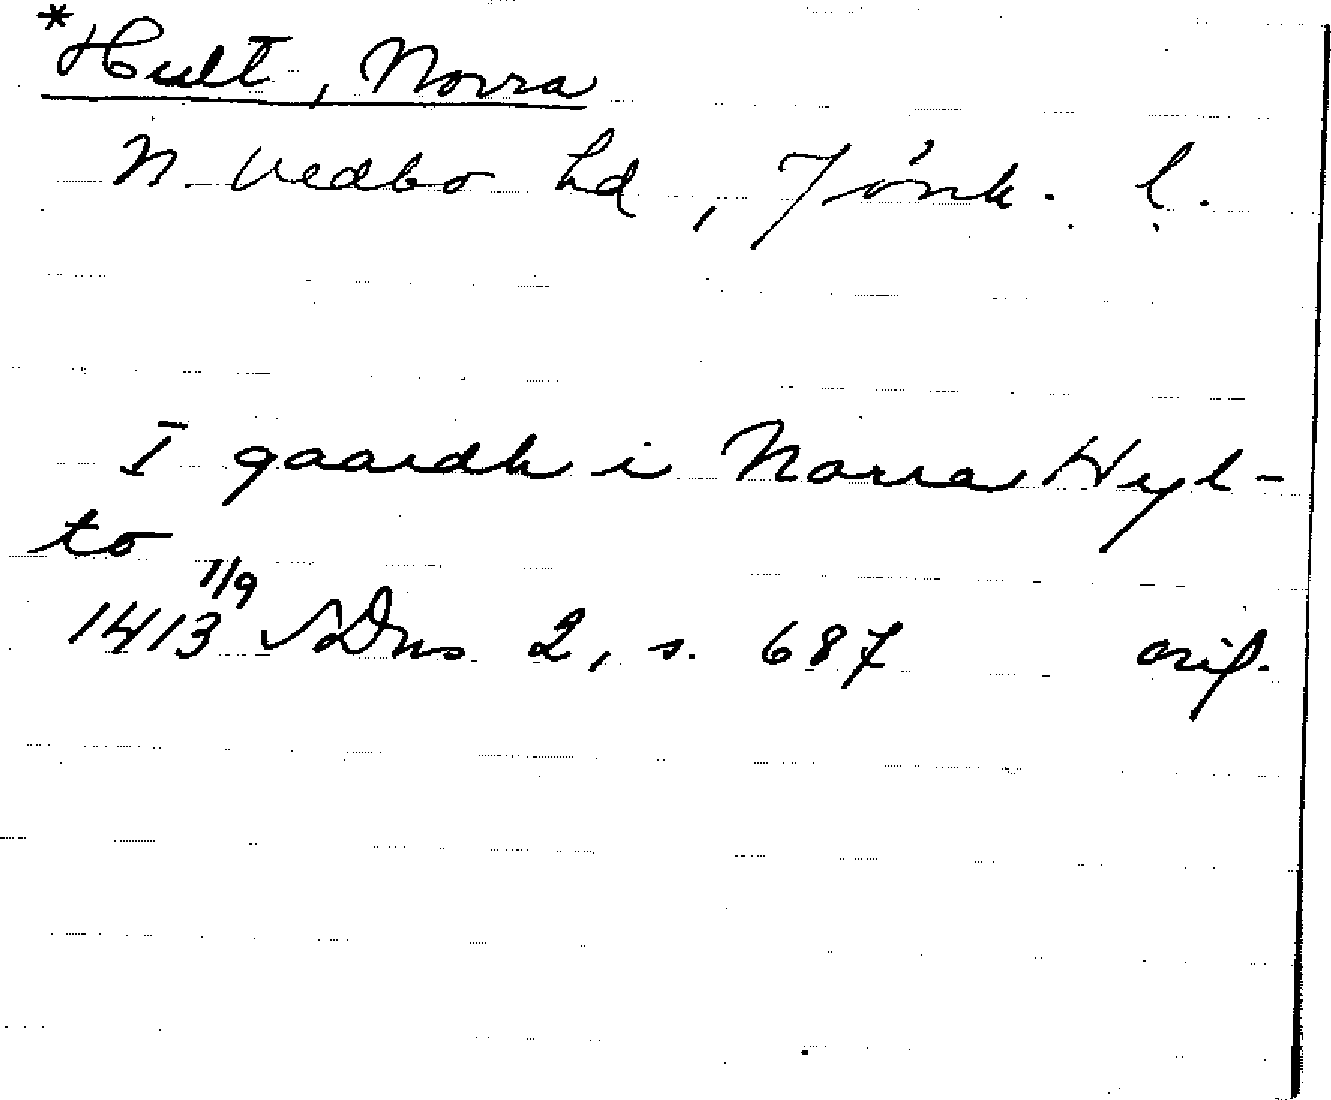 *Hult, Norra
N. Vedbo hd, Jönk. l.
I gaardh i Norra Hyl-
to
1413 1/9 SDns 2, s. 687 orig.